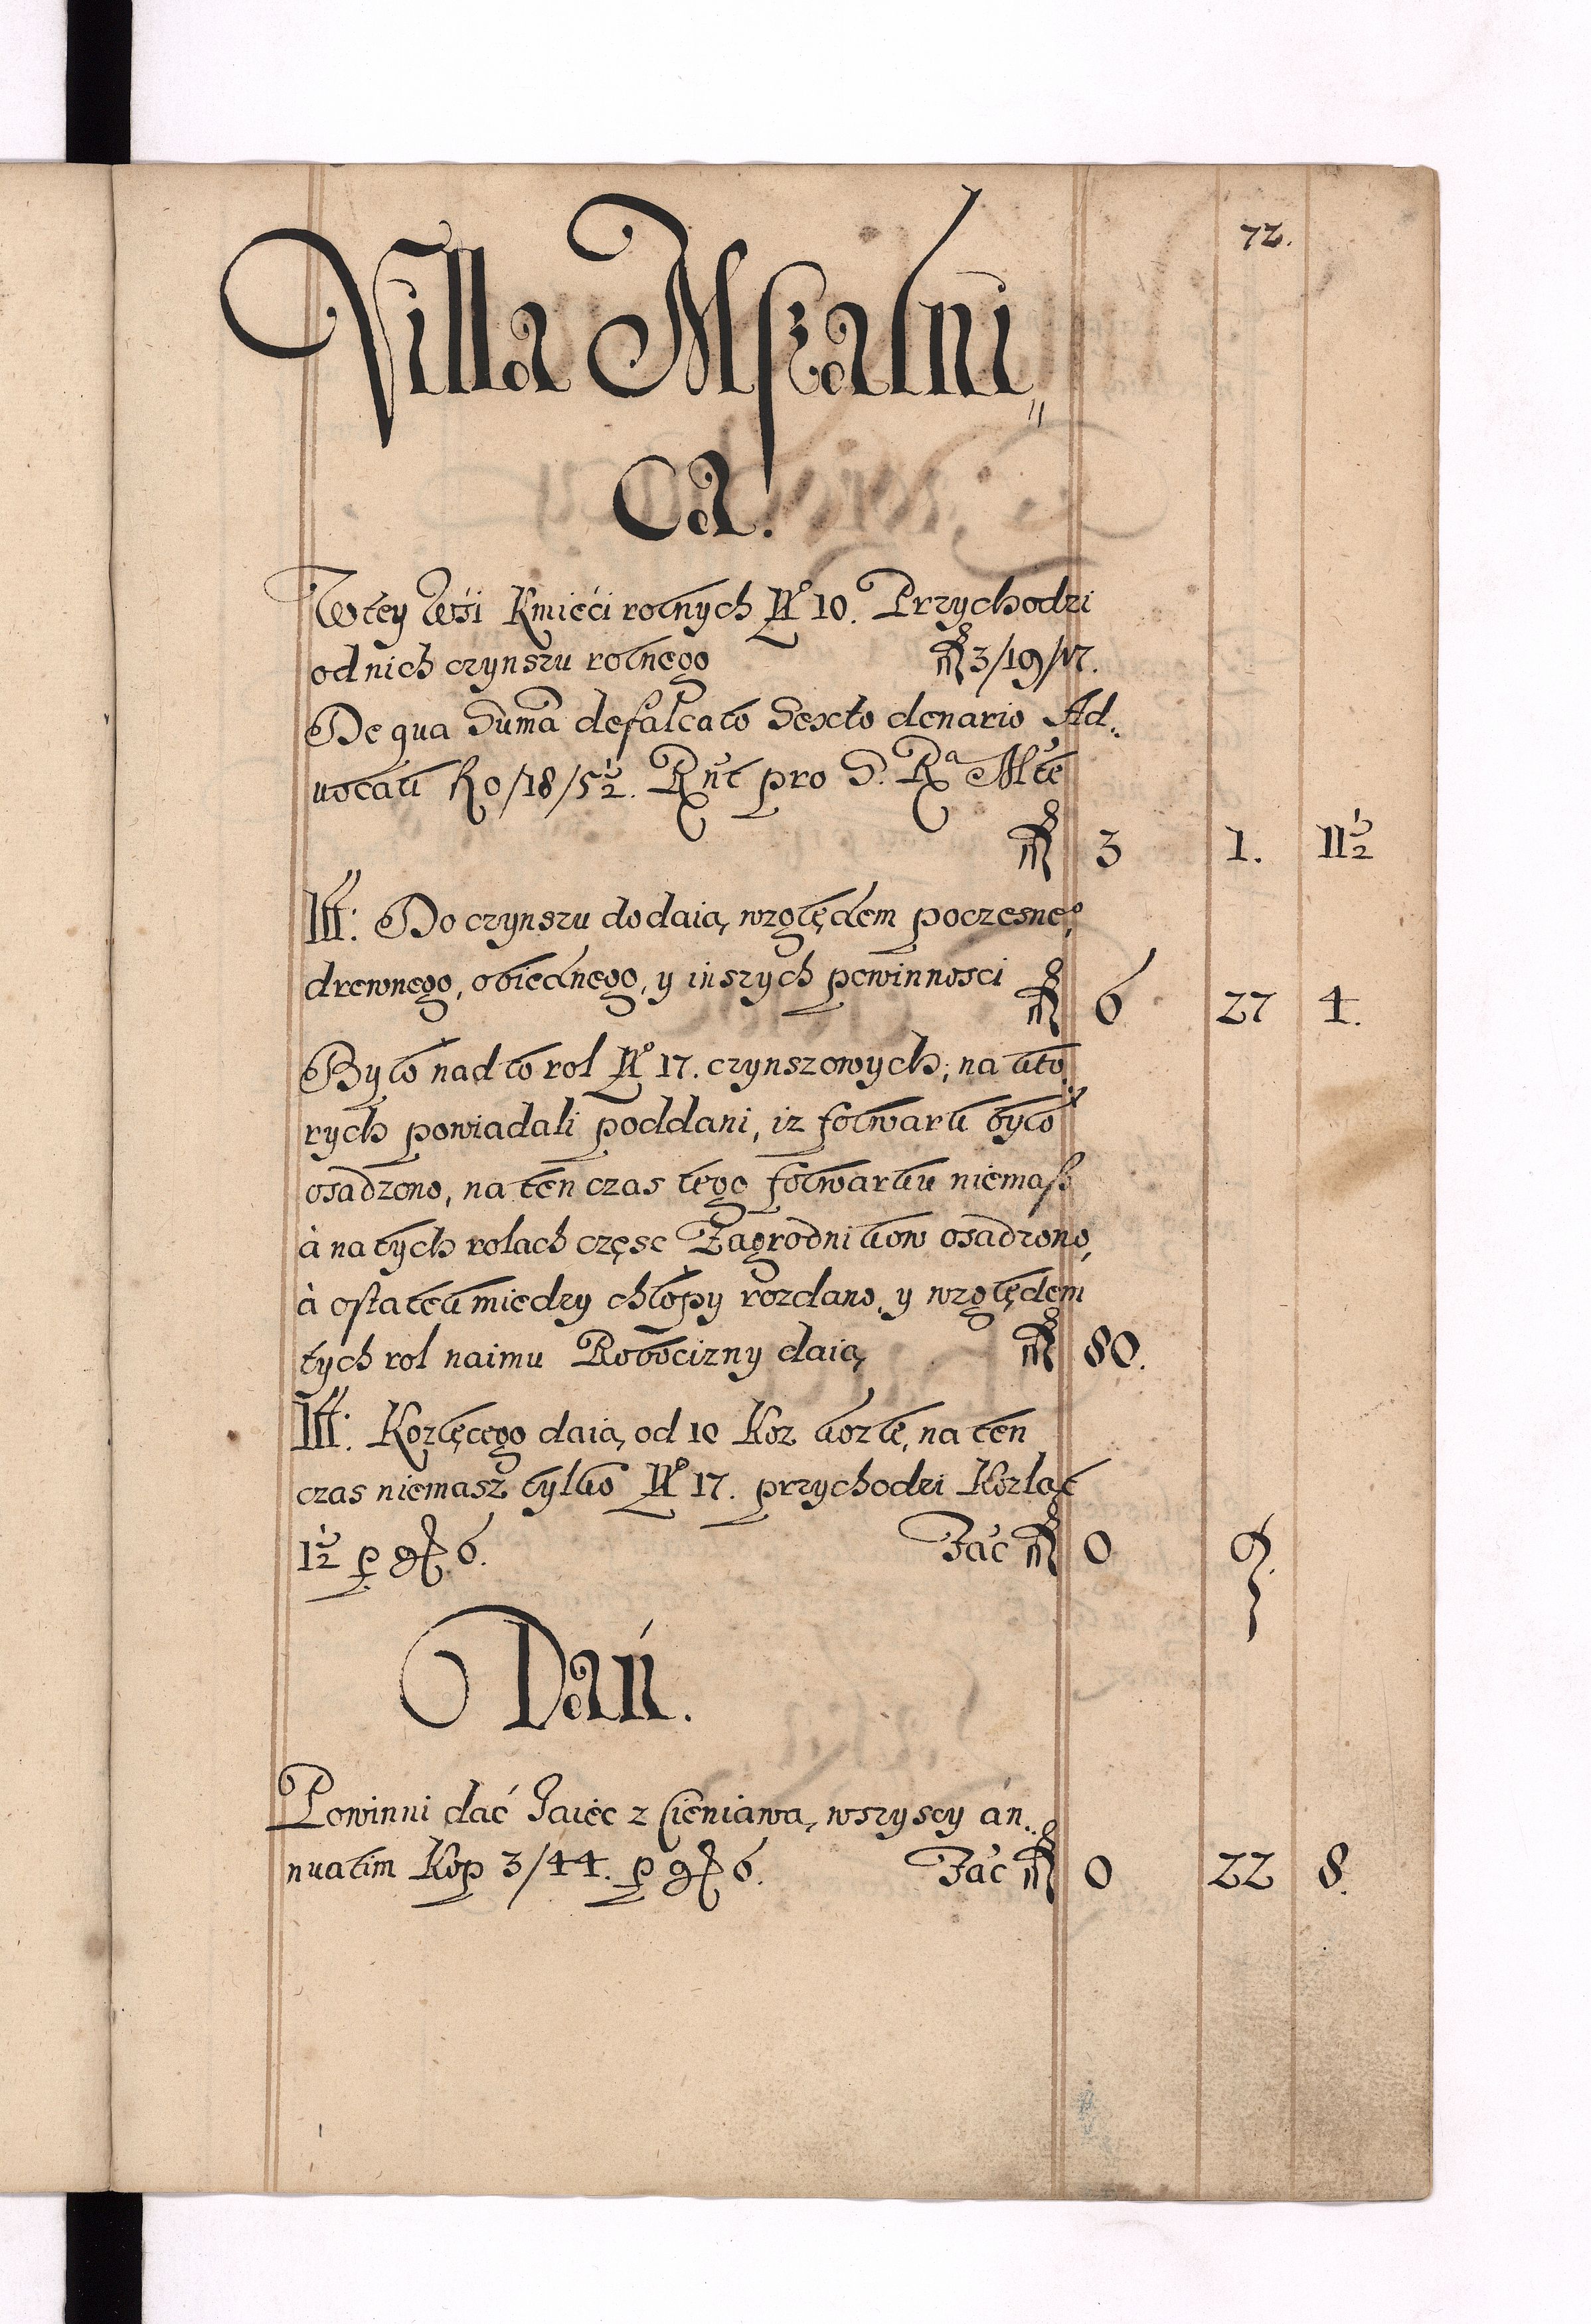 72.
Villa Mszalni„
ca.
W tey Wśi Kmieći rolnych No 10. Przychodzi
od nich czynszu rolnego 3/19/17.
De qua Suma defalcato Sexto denario Ad„
uocati fl 0/18/5½. Rnt pro S. Ra Mte
3 1. 11½
Itt: Do czynszu dodaią, względem poczesneo,
drewnego, obiednego, y inszych powinnosci 6 27 4.
Było nad to rol No 17. czynszowych, na kto„
rych powiadali poddani, iz folwark było
osadzono, na ten czas tego folwarku niemasz
à na tych rolach częsc Zagrodnikow osadzono,
à ostatek miedzy chłopy rozdano, y względem
tych rol naimu Robocizny daią 80.
Itt: Kozlęcego daią, od 10 Koz kozlę, na ten
czas niemasz tylko No 17. przychodzi Kozląt
1½ p gr 6. Fac 0 9.
Dań.
Powinni dać Jaiec z Cieniawą, wszyscy an„
nuatim Kop 3/44. p gr 6. Fac 0 22 8.